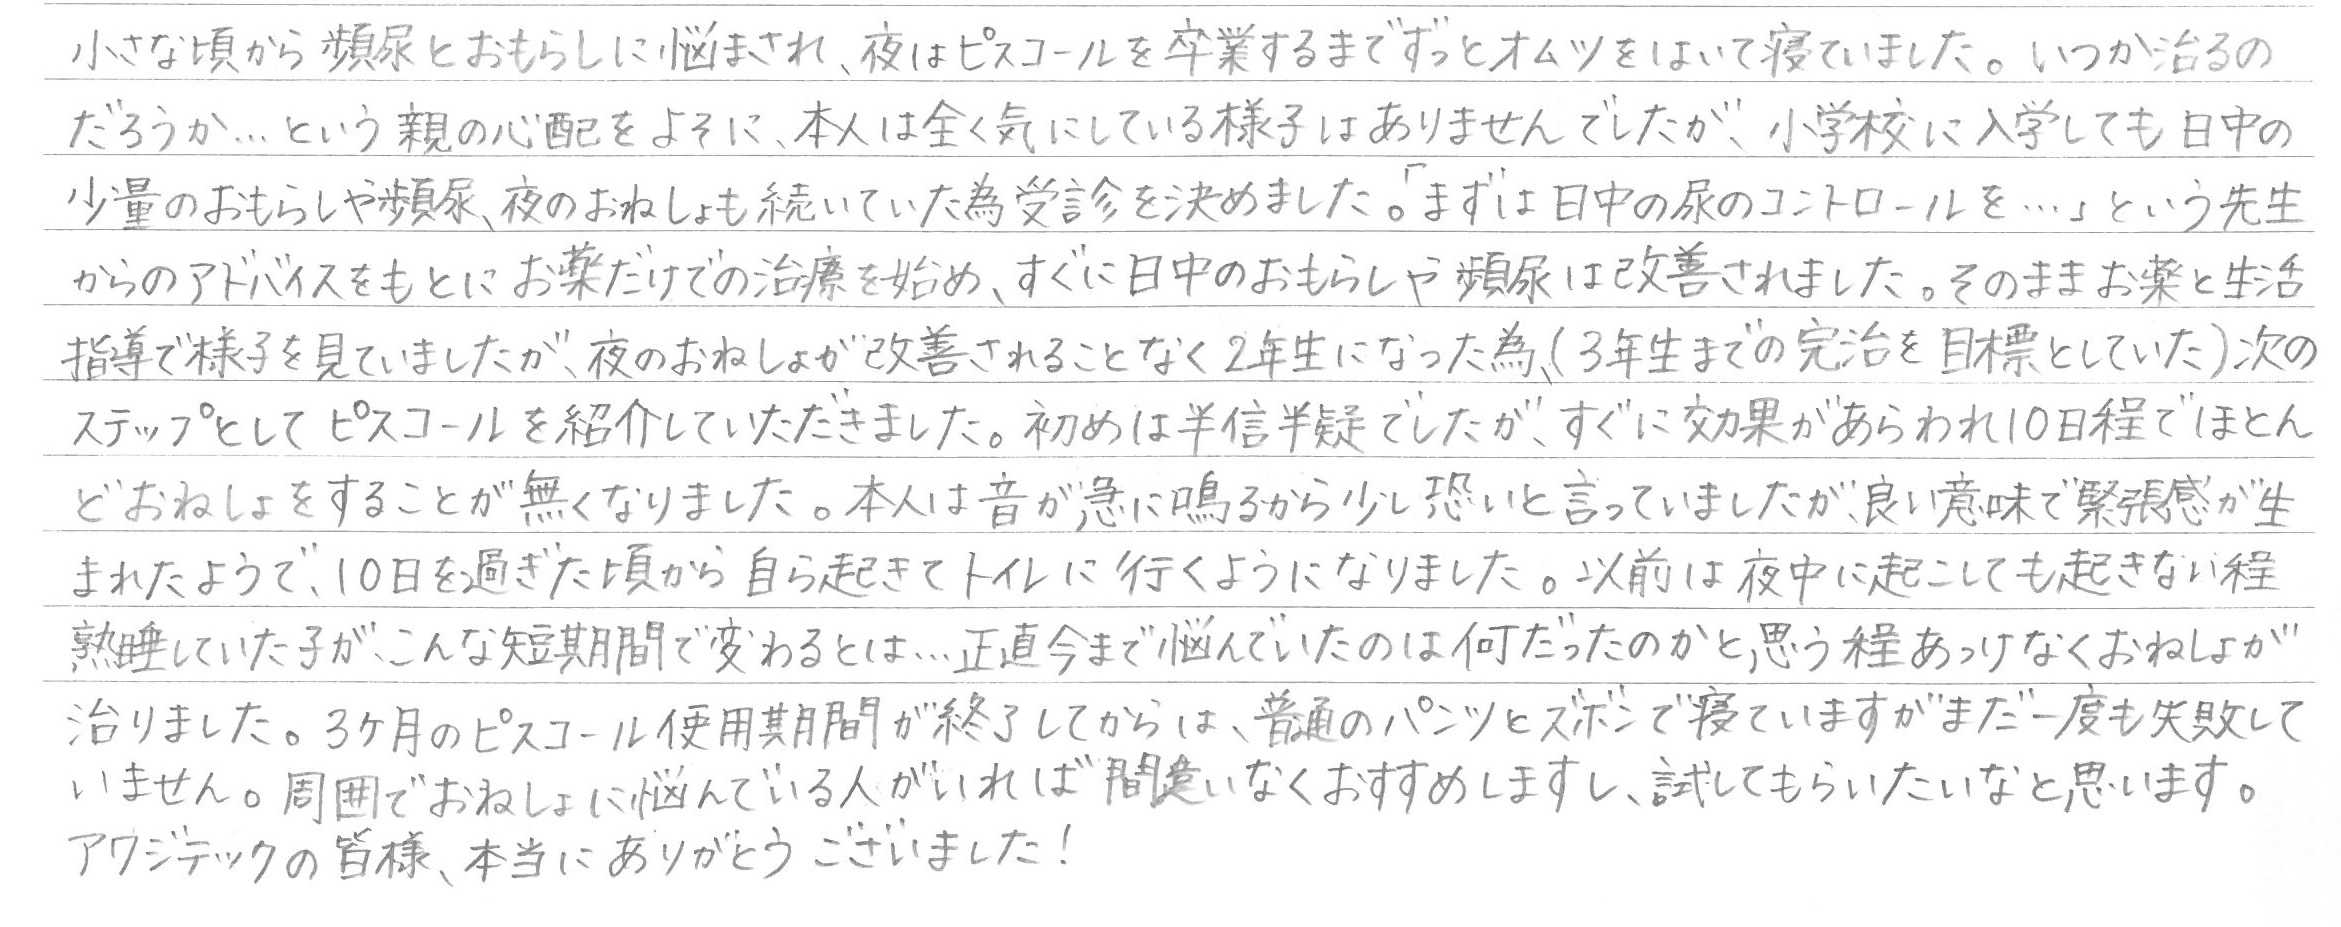 小さな頃から頻尿とおもらしに悩まされ、夜はピスコールを卒業するまでずっとオムツをはいて寝ていました。いつか治るの
だろうか…という親の心配をよそに、本人は全く気にしている様子はありませんでしたが、小学校に入学しても日中の
少量のおもらしや頻尿、夜のおねしょも続いていた為受診を決めました。「まずは日中の尿のコントロールを…」という先生
からのアドバイスをもとにお薬だけでの治療を始め、すぐに日中のおもらしや頻尿は改善されました。そのままお薬と生活
指導で様子を見ていましたが、夜のおねしょが改善されることなく2年生になった為、(3年生までの完治を目標としていた)次の
ステップとしてピスコールを紹介していただきました。初めは半信半疑でしたが、すぐに効果があらわれ10日程でほとん
どおねしょをすることが無くなりました。本人は音が急に鳴るから少し恐いと言っていましたが、良い意味で緊張感が生
まれたようで、10日を過ぎた頃から自ら起きてトイレに行くようになりました。以前は夜中に起こしても起きない程
熟睡していた子が、こんな短期間で変わるとは…正直今まで悩んでいたのは何だったのかと思う程あっけなくおねしょが
治りました。3ケ月のピスコール使用期間が終了してからは、普通のパンツとズボンで寝ていますがまだ一度も失敗して
いません。周囲でおねしょに悩んでいる人がいれば間違いなくおすすめしますし、試してもらいたいなと思います。
アワジテックの皆様、本当にありがとうございました!